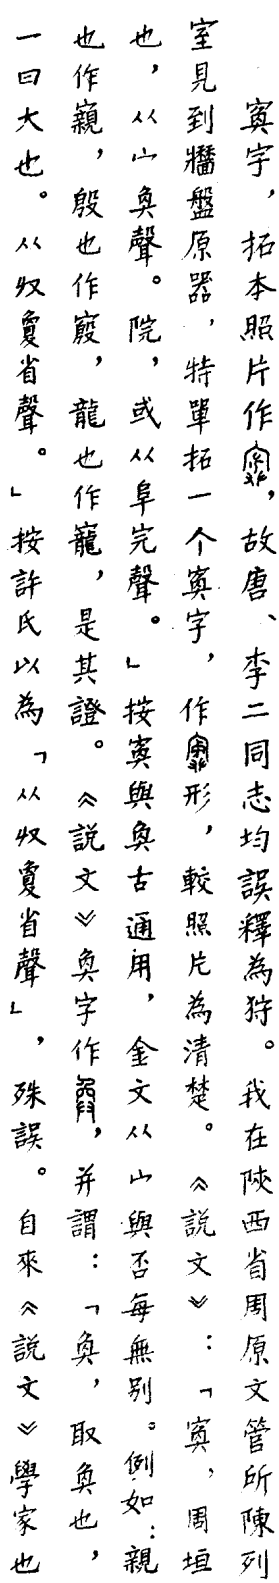 寏字，拓本照片作，故唐、李二同志均誤釋為狩。我在陝西省周原文管所陳列
室見到牆盤原器，特單拓一个寏字，作形，較照片為清楚。《說文》：「寏，周垣
也，从宀奐聲。院，或从阜完聲。」按寏與奐古通用，金文从宀與否每無別。例如：親
也作寴，殷也作㲃，龍也作寵，是其證。《說文》奐字作，并謂：「奐，取奐也，
一曰大也。从𠬞夐省聲。」按許氏以為「从𠬞夐省聲」，殊誤。自來《說文》學家也